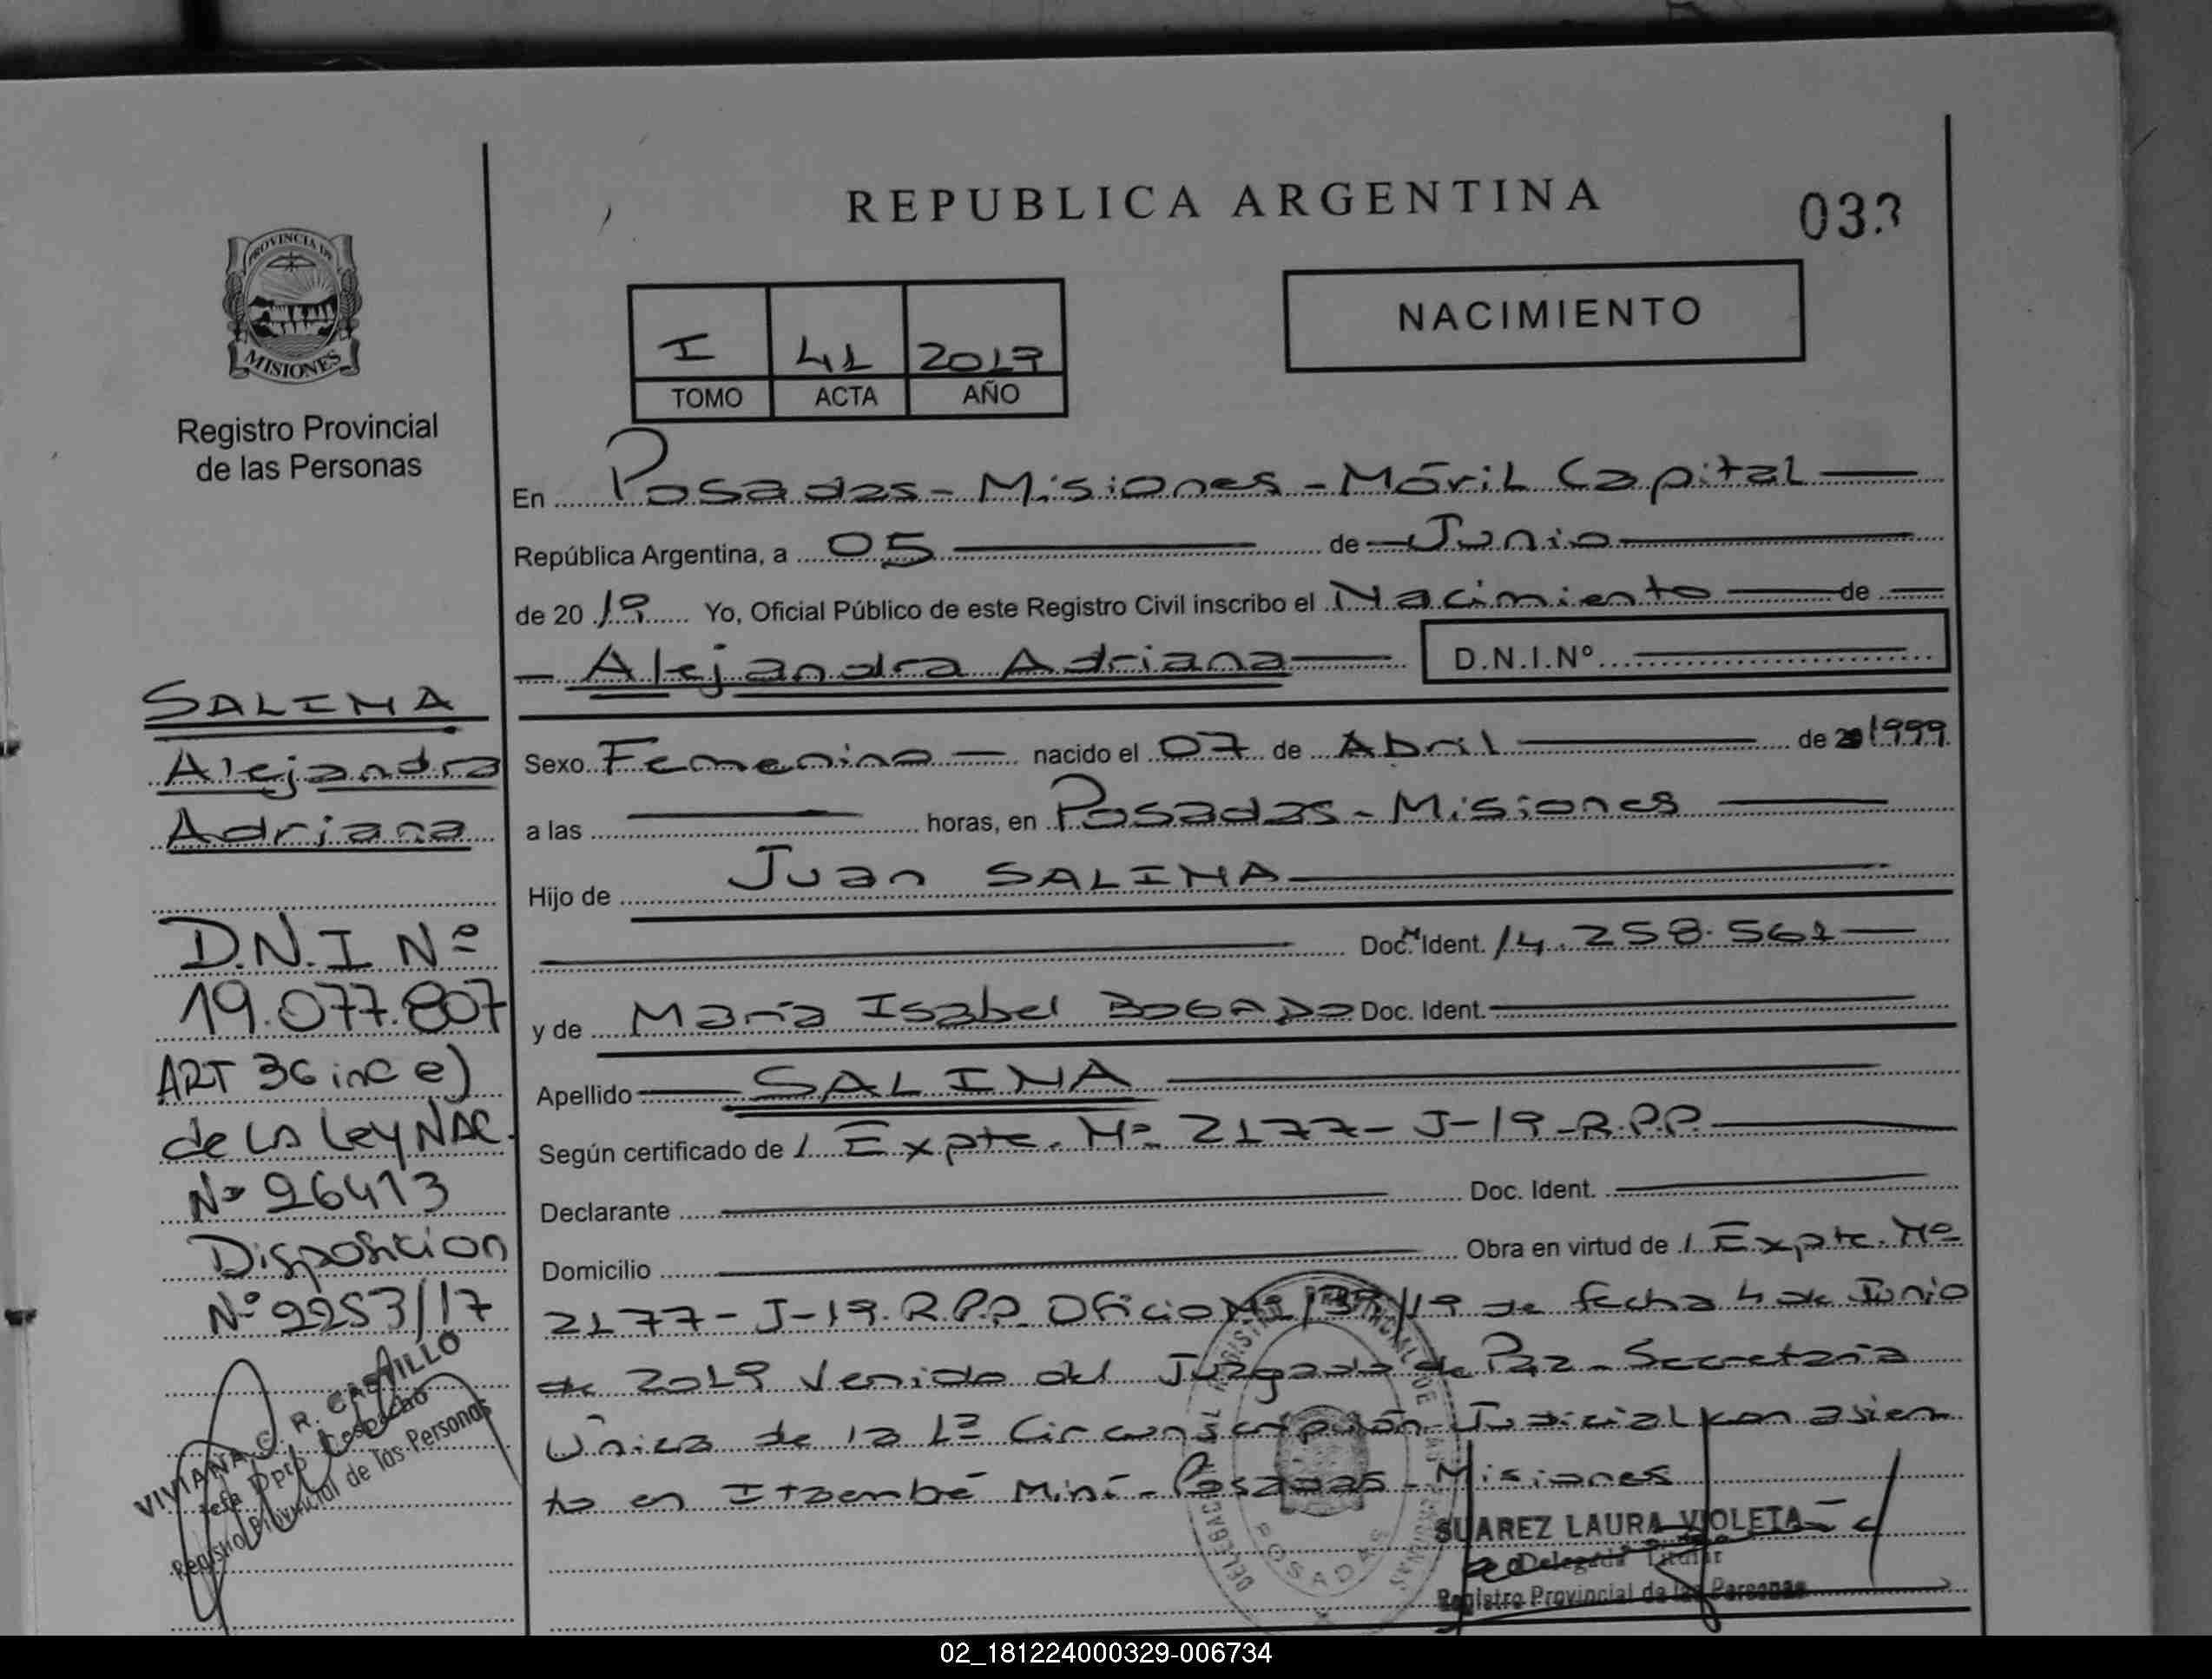 REPUBLICA ARGENTINA
033
PROVINCIA DE
MISIONES
Registro Provincial
de las Personas
NACIMIENTO
I 41 2019
TOMO ACTA AÑO
En Posadas - Misiones - Móvil Capital
República Argentina, a 05 de Junio
de 2019 Yo, Oficial Público de este Registro Civil inscribo el Nacimiento de
Alejandra Adriana D.N.I.Nº
Sexo Femenino nacido el 07 de Abril de 1999
a las horas, en Posadas - Misiones
Hijo de Juan SALINA
Doc. M Ident. 14.258.561
y de María Isabel BOGADO Doc. Ident.
Apellido SALINA
Según certificado de / Expte. Nº 2177-J-19-R.P.P.
Declarante Doc. Ident.
Domicilio Obra en virtud de / Expte. Nº
2177-J-19.R.P.P. Oficio Nº /19 de fecha 4 de Junio
de 2019 venido del Juzgado de Paz - Secretaría
Única de la 1ª Circunscripción Judicial con asien
to en Itaembé Miní - Posadas - Misiones
SUAREZ LAURA VIOLETA
Delegada Titular
Registro Provincial de las Personas
POSADAS
SALINA
Alejandra
Adriana
D.N.I Nº
19.077.807
ART 36 inc e)
de La Ley NAC.
Nº 26413
Disposicion
Nº 2253/17
VIVIANA R. CASTILLO
Jefa Dpto Despacho
Registro Provincial de las Personas
02_181224000329-006734